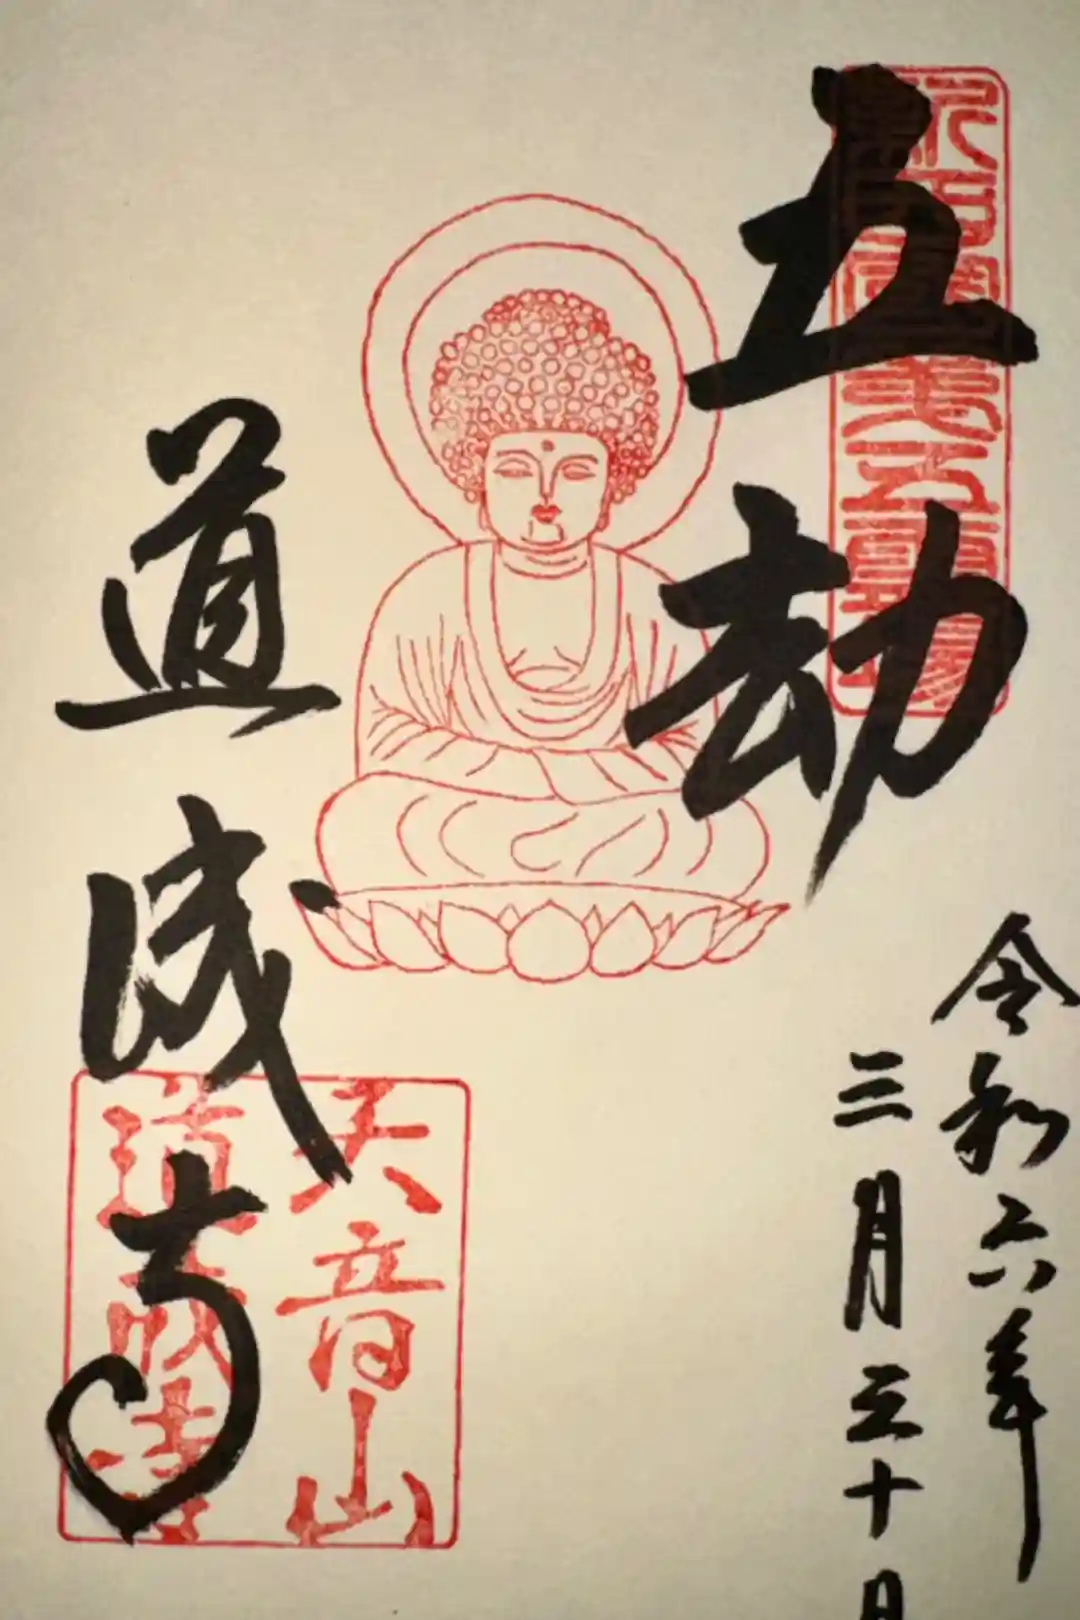 五劫
令和六年
三月三十日
道成寺
天音山
道成寺